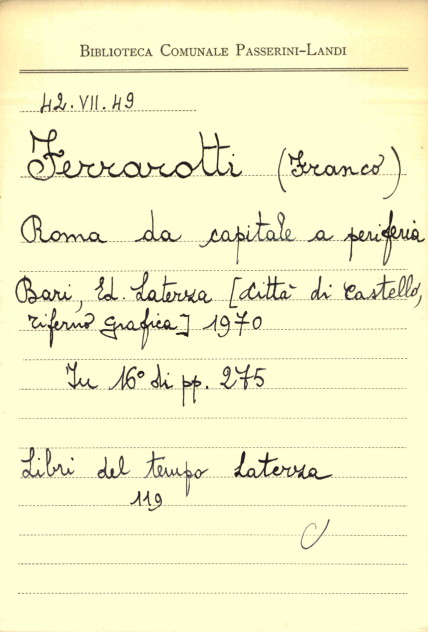 BIBLIOTECA COMUNALE PASSERINI-LANDI
42.VII.49
Ferrarotti (Franco)
Roma da capitale a periferia
Bari, Ed. Laterza [Città di Castello,
Tiferno Grafica] 1970
In 16° di pp. 275
Libri del tempo Laterza
119
C